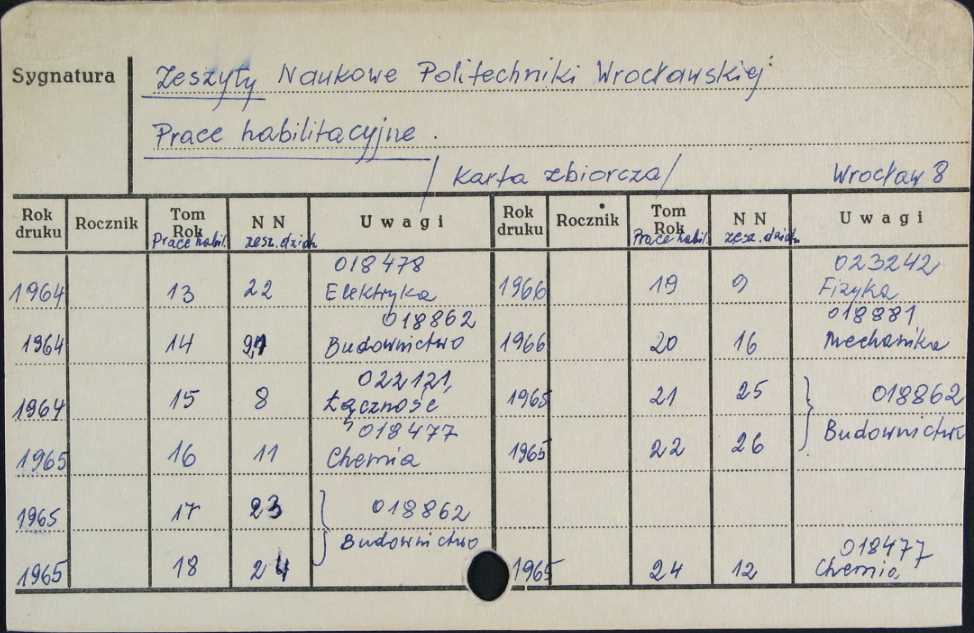 Sygnatura
Zeszyty Naukowe Politechniki Wrocławskiej:
Prace habilitacyjne.
/ Karta zbiorcza / Wrocław 8
Rok druku Rocznik Tom Rok Prace habil. NN zesz. dzied. Uwagi Rok druku Rocznik Tom Rok Prace habil. NN zesz. dzied. Uwagi
1964 13 22 018478 Elektryka 1966 19 9 023242 Fizyka
1964 14 21 018862 Budownictwo 1966 20 16 018881 Mechanika
1964 15 8 022121, Łączność 1965 21 25 } 018862
1965 16 11 018477 Chemia 1965 22 26 Budownictwo
1965 17 23 } 018862
1965 18 24 Budownictwo 1965 24 12 018477 Chemia